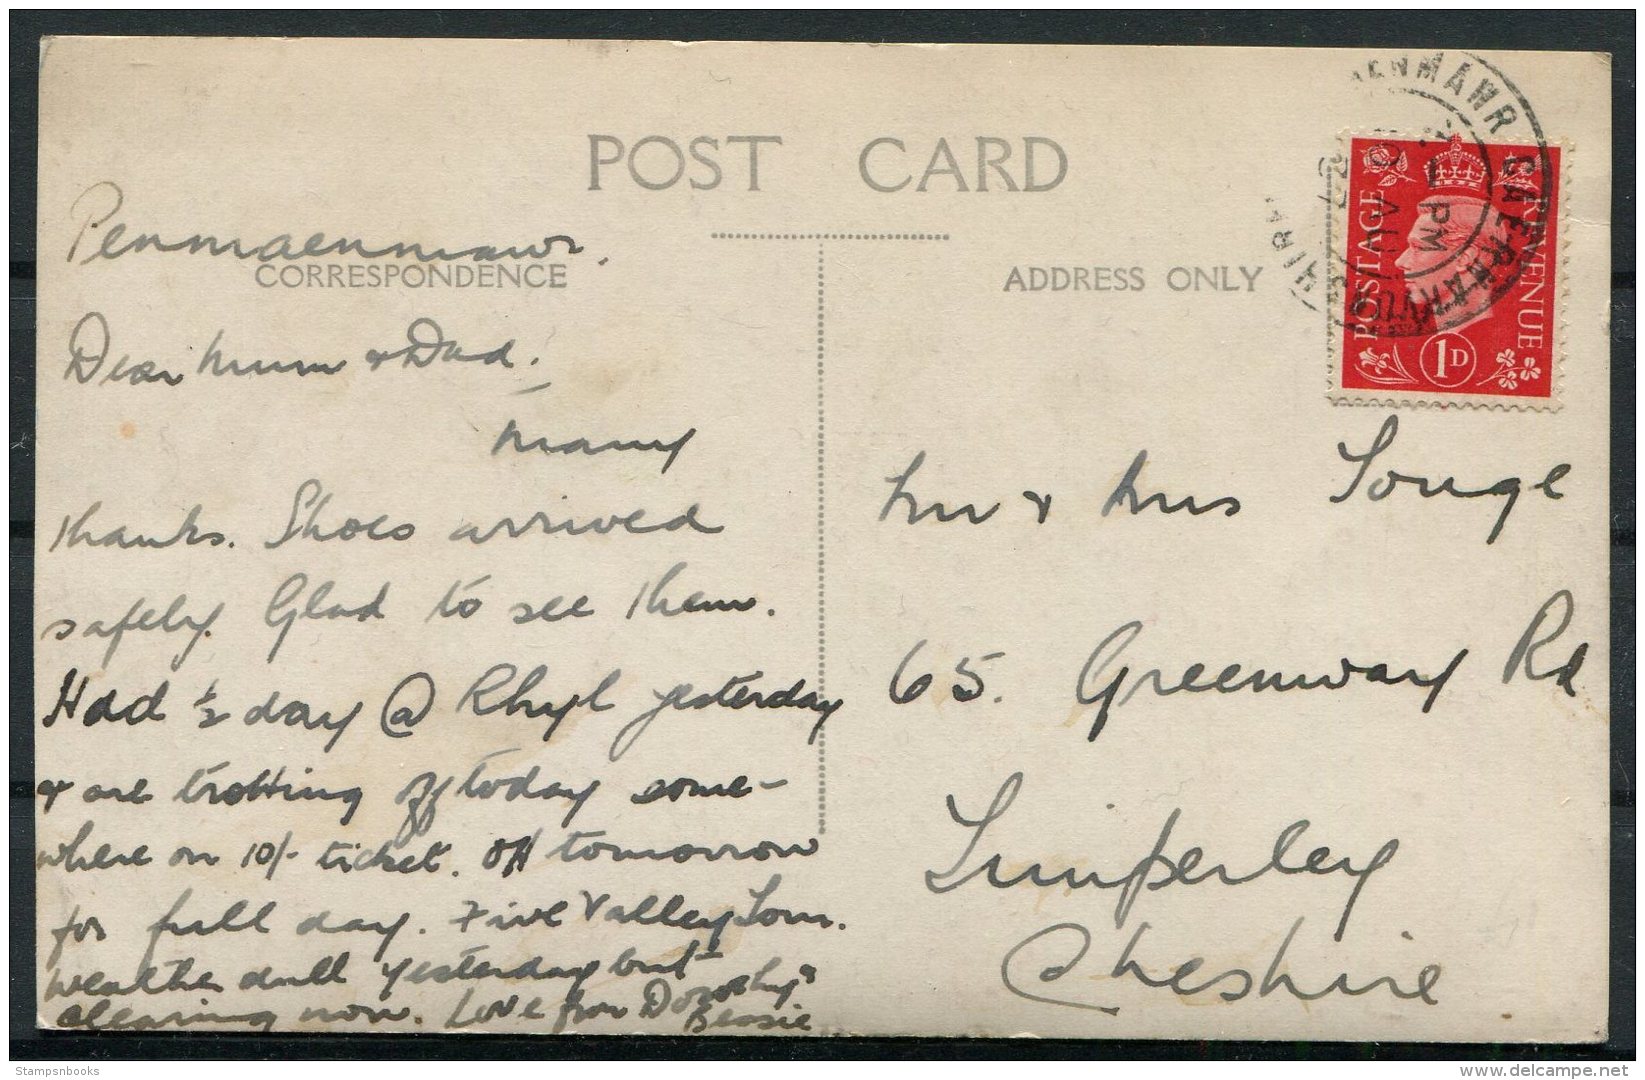 POST CARD
CORRESPONDENCE
Penmaenmawr.
Dear Mum & Dad.
Many
thanks. Shoes arrived
safely. Glad to see them.
Had ½ day @ Rhyl yesterday
& are trotting off today some-
where on 10/- ticket. Off tomorrow
for full day. Five Valley Tour.
Weather dull yesterday but
clearing now. Love from Dorothy &
Bessie
ADDRESS ONLY
Mr & Mrs Tonge
65. Greenway Rd
Timperley
Cheshire
PENMAWR CAERNARVONSHIRE
PM
AU
37
POSTAGE
REVENUE
1D
Stampsnbooks
delcampe.net